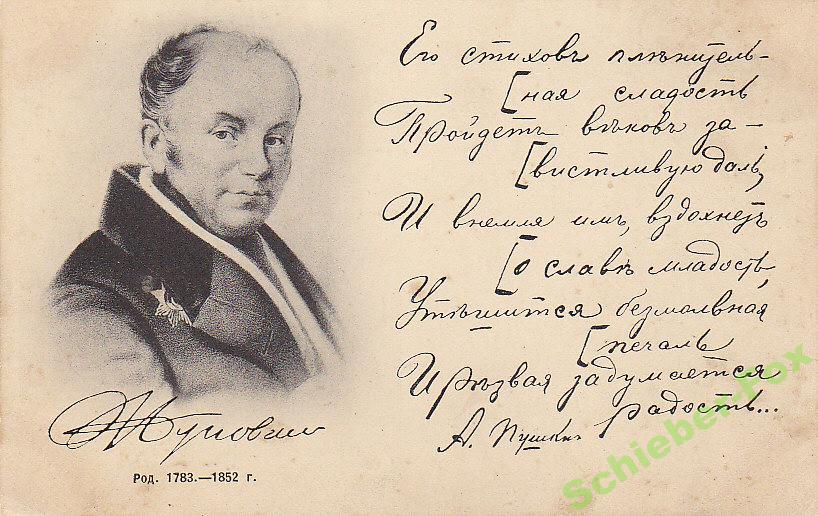 Его стиховъ плѣнитель-
[ная сладость
Пройдетъ вѣковъ за-
[вистливую даль,
И внемля имъ, вздохнетъ
[о славѣ младость,
Утѣшится безмолвная
[печаль
И рѣзвая задумается
радость...
А. Пушкинъ
Жуковскій
Род. 1783.—1852 г.
Schieber-Fox